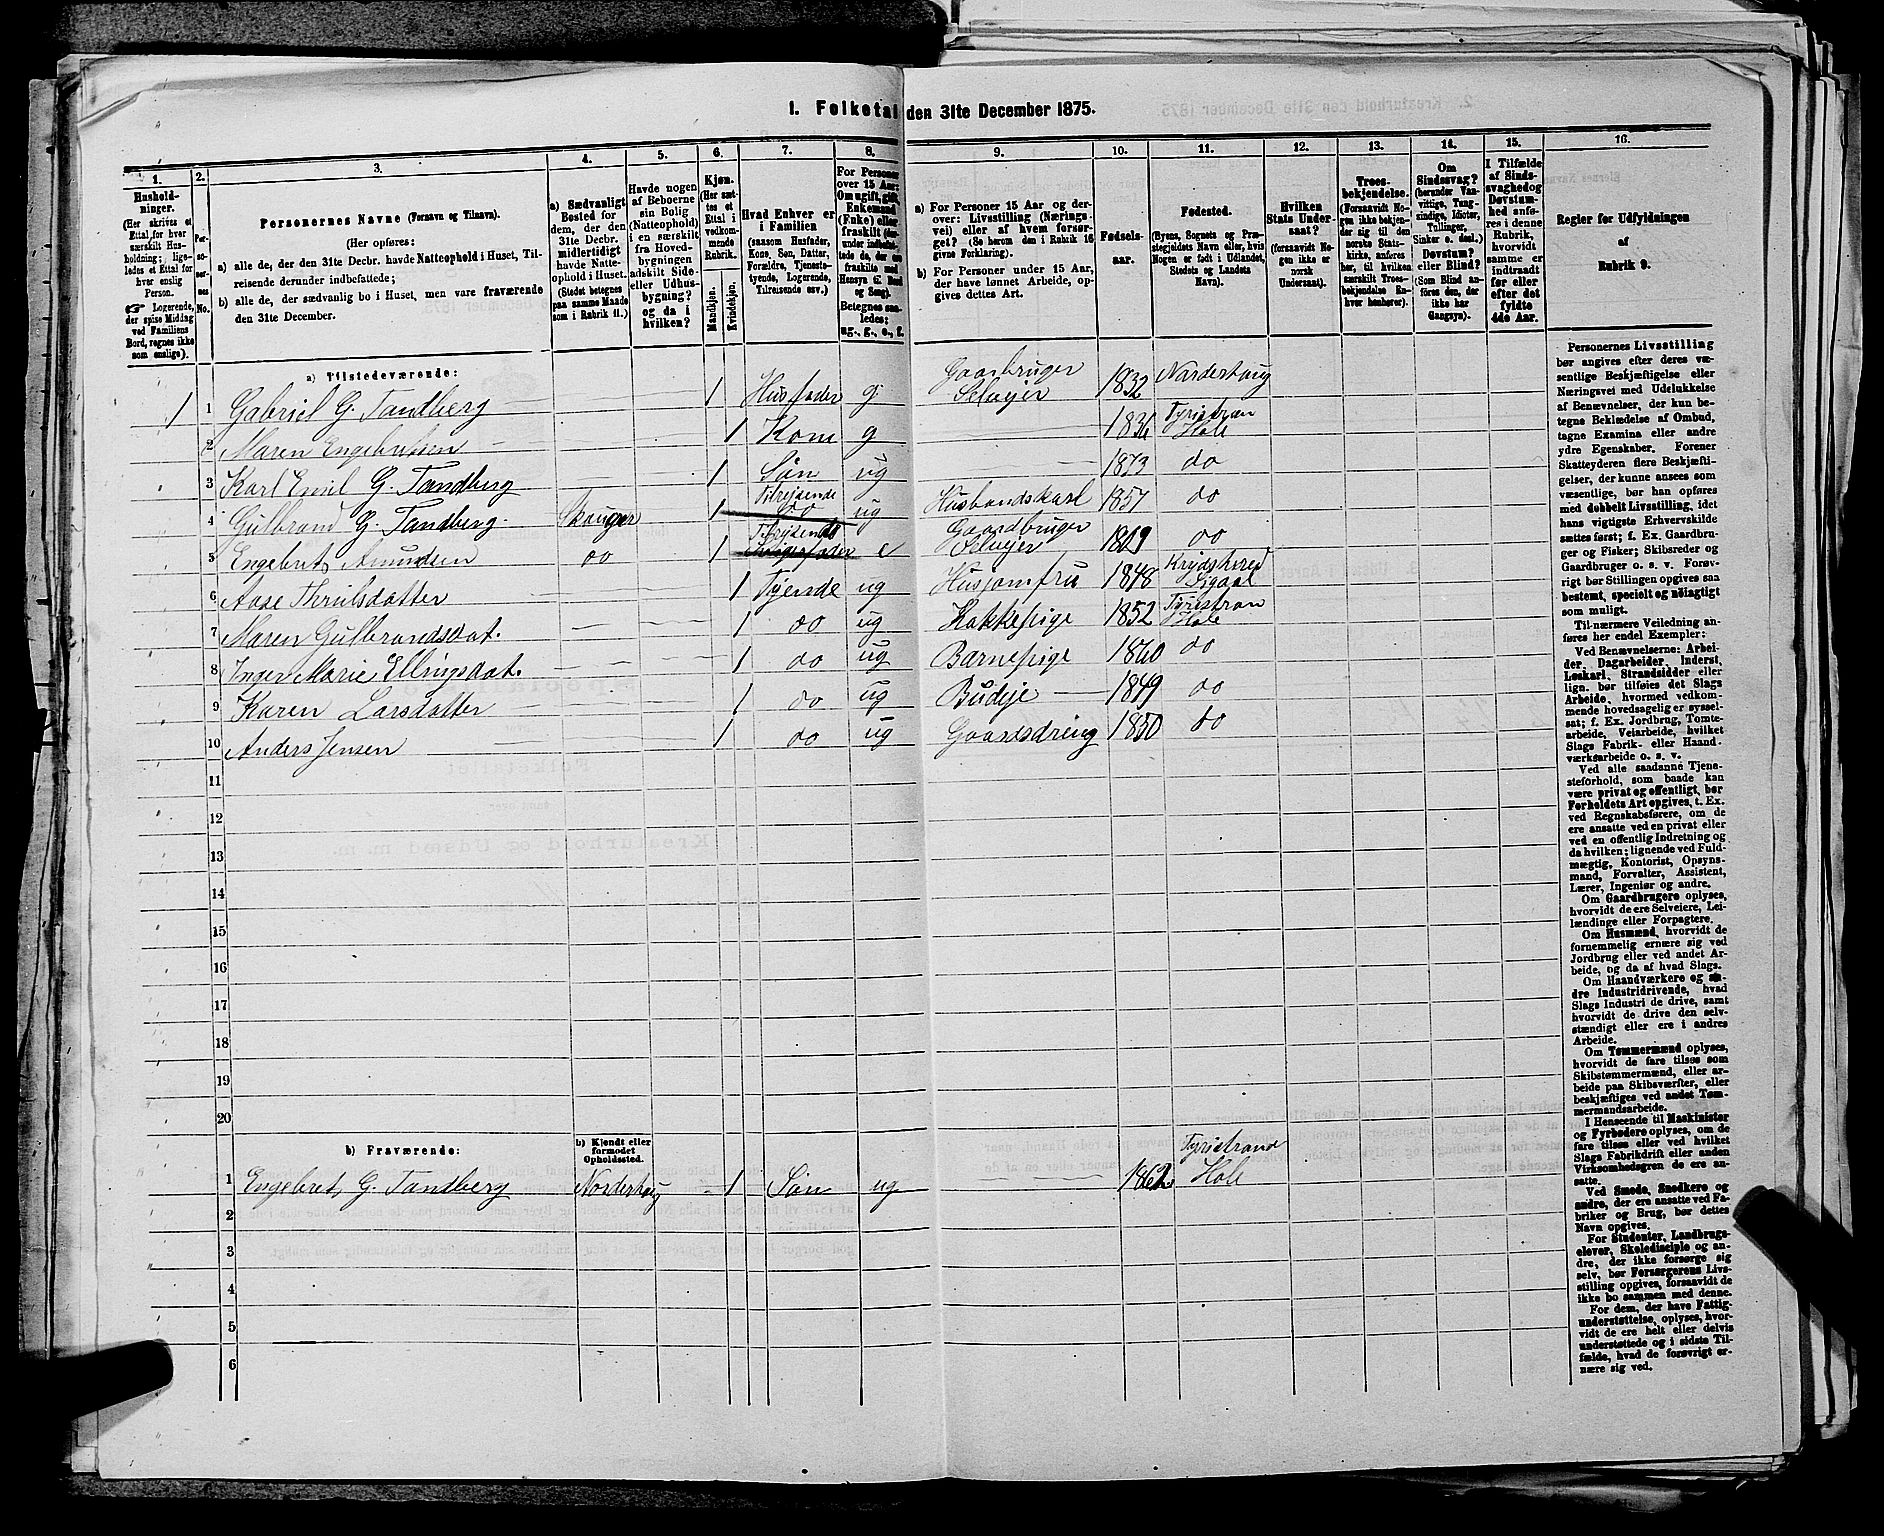 1. Folketal den 31te December 1875.
1. 2. 3. 4. 5. 6. 7. 8. 9. 10. 11. 12. 13. 14. 15. 16.
Hushold-
ninger.
(Her skrives et
Ettal for hver
særskilt Hus-
holdning; lige-
ledes et Ettal for
hver enslig
Person.
Logerende,
der spise Middag
ved Familiens
Bord, regnes ikke
som enslige).
Per-
so-
ner-
nes
No.
Personernes Navne (Fornavn og Tilnavn).
(Her opføres:
a) alle de, der den 31te Decbr. havde Natteophold i Huset, Til-
reisende derunder indbefattede;
b) alle de, der sædvanlig bo i Huset, men vare fraværende
den 31te December.
a) Sædvanligt
Bosted for
dem, der den
31te Decbr.
midlertidigt
havde Natte-
ophold i Huset.
(Stedet betegnes
paa samme Maade
som i Rubrik 11.)
Havde nogen
af Beboerne
sin Bolig
(Natteophold)
i en særskilt
fra Hoved-
bygningen
adskilt Side-
eller Udhus-
bygning?
og da i
hvilken?
Kjøn.
(Her sæt-
tes et
Ettal i
vedkom-
mende
Rubrik.
Mandkjøn.
Kvindekjøn.
Hvad Enhver er
i Familien
(saasom Husfader,
Kone, Søn, Datter,
Forældre, Tjeneste-
tyende, Logerende,
Tilreisende osv.)
For Personer
over 15 Aar:
Om ugift, gift,
Enkemand
(Enke) eller
fraskilt (der-
under indbefat-
tede de, der ere
fraskilte med
Hensyn til Bord
og Seng).
Betegnes saa-
ledes:
ug., g., e., f.
a) For Personer 15 Aar og der-
over: Livsstilling (Nærings-
vei) eller af hvem forsør-
get? (Se herom den i Rubrik 16
givne Forklaring).
b) For Personer under 15 Aar,
der have lønnet Arbeide, op-
gives dettes Art.
Fødsels-
aar.
Fødested.
(Byens, Sognets og Præ-
stegjeldets Navn eller, hvis
Nogen er født i Udlandet,
Stedets og Landets
Navn).
Hvilken
Stats Under-
saat?
(forsaavidt No-
gen ikke er
norsk
Undersaat).
Troes-
bekjendelse.
(Forsaavidt No-
gen ikke bekjen-
der sig til den
norske Stats-
kirke, anføres
her, til hvilken
særskilt Troes-
bekjendelse En-
hver henhører).
Om
Sindssvag?
(herunder Van-
vittige, Tung-
sindige, Idioter,
Tullinger,
Sinker o. desl.)
Døvstum?
eller Blind?
(Som Blind an-
føres den, der
ikke har
Gangsyn).
I Tilfælde
af Sinds-
svaghed og
Døvstum-
hed anfø-
res i denne
Rubrik,
hvorvidt
samme er
indtraadt
før eller
efter det
fyldte
4de Aar.
Regler for Udfyldningen
af
Rubrik 9.
a) Tilstedeværende:
1 1 Gabriel G. Tandberg 1 Husfader g Gaarbruger Selvejer 1832 Norderhoug
2 Maren Engebretsen 1 Kone g 1836 Tyristran Hole
3 Karl Emil G. Tandberg 1 Søn ug 1873 do
4 Gulbrand G. Tandberg Skauger 1 Tilrejsende do ug Husbondskarl 1857 do
5 Engebret Amundsen do 1 Tilrejsende Svigerfader e Gaardbruger Selvejer 1809 do
6 Aase Thrulsdatter 1 Tyende ug Husjomfru 1848 Krydshered Sigdal
7 Maren Gulbrandsdat. 1 do ug Kokkepige 1852 Tyristran Hole
8 Inger Marie Ellingsdat. 1 do ug Barnepige 1860 do
9 Karen Larsdatter 1 do ug Budeje 1849 do
10 Anders Jensen 1 do ug Gaardsdreng 1850 do
11
12
13
14
15
16
17
18
19
20
b) Fraværende:
b) Kjendt eller
formodet
Opholdssted.
1 Engebret G. Tandberg Norderhoug 1 Søn ug 1862 Tyristrand Hole
2
3
4
5
6
Personernes Livsstilling
bør angives efter deres væ-
sentlige Beskjæftigelse eller
Næringsvei med Udelukkelse
af Benævnelser, der kun be-
tegne Beklædelse af Ombud,
tagne Examina eller andre
ydre Egenskaber. Forener
Skatteyderen flere Beskjæfti-
gelser, der kunne ansees som
væsentlige, bør han opføres
med dobbelt Livsstilling, idet
hans vigtigste Erhvervskilde
sættes først; f. Ex. Gaardbru-
ger og Fisker; Skibsreder og
Gaardbruger o. s. v. Forøv-
rigt bør Stillingen opgives saa
bestemt, specielt og nøiagtigt
som muligt.
Til nærmere Veiledning an-
føres her endel Exempler:
Ved Benævnelserne: Arbei-
der, Dagarbeider, Inderst,
Løskarl, Strandsidder eller
lign. bør tilføies det Slags
Arbeide, hvormed vedkom-
mende hovedsagelig er syssel-
sat; f. Ex. Jordbrug, Tomte-
arbeide, Veiarbeide, hvilket
Slags Fabrik- eller Haand-
værksarbeide o. s. v.
Ved alle saadanne Tjene-
steforhold, som baade kan
være privat og offentligt, bør
Forholdets Art opgives, t. Ex.
ved Regnskabsførere, om de
ere ansatte ved en privat eller
ved en offentlig Indretning og
da hvilken; lignende ved Fuld-
mægtig, Kontorist, Opsyns-
mand, Forvalter, Assistent,
Lærer, Ingeniør og andre.
Om Gaardbrugere oplyses,
hvorvidt de ere Selveiere, Lei-
lændinge eller Forpagtere.
Om Husmænd, hvorvidt de
fornemmelig ernære sig ved
Jordbrug eller ved andet Ar-
beide, og da af hvad Slags.
Om Haandværkere og an-
dre Industridrivende, hvad
Slags Industri de drive, samt
hvorvidt de drive den selv-
stændigt eller ere i andres
Arbeide.
Om Tømmermænd oplyses,
hvorvidt de fare tilsøs som
Skibstømmermænd, eller ar-
beide paa Skibsværfter, eller
beskjæftiges ved andet Tøm-
mermandsarbeide.
I Henseende til Maskinister
og Fyrbødere oplyses, om de
fare tilsøs eller ved hvilket
Slags Fabrikdrift eller anden
Virksomhedsgren de ere an-
satte.
Ved Smede, Snedkere og
andre, der ere ansatte ved Fa-
briker og Brug, bør dettes
Navn opgives.
For Studenter, Landbrugs-
elever, Skoledisciple og an-
dre, der ikke forsørge sig
selv, bør Forsørgerens Livs-
stilling opgives, forsaavidt de
ikke bo sammen med denne.
For dem, der have Fattig-
understøttelse, oplyses, hvor-
vidt de ere helt eller delvis
understøttede og i sidste Til-
fælde, hvad de forøvrigt er-
nære sig ved.